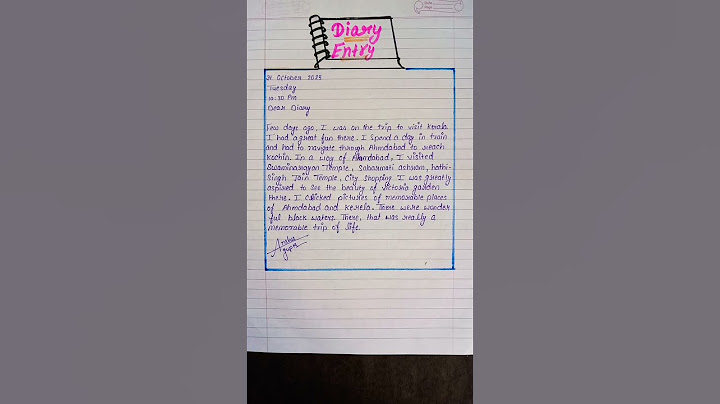 Diary
Entry
31 October 2023
Tuesday
10:30 Pm
Dear Diary
Few days ago, I was on the trip to visit kerala
I had a great fun there. I spend a day in train
and had to navigate through Ahmdabad to reach
kochin. In a way of Ahmdabad, I visited
Swaminarayan Temple, Sabarmati ashram, hathi-
Singh Jain Temple, City shopping I was greatly
aspired to see the beauty of victoria garden
there. I clicked pictures of memorable places
of Ahmdabad and kerela. There were wonder
ful black waters. There, that was really a
memorable trip of life.
gupta